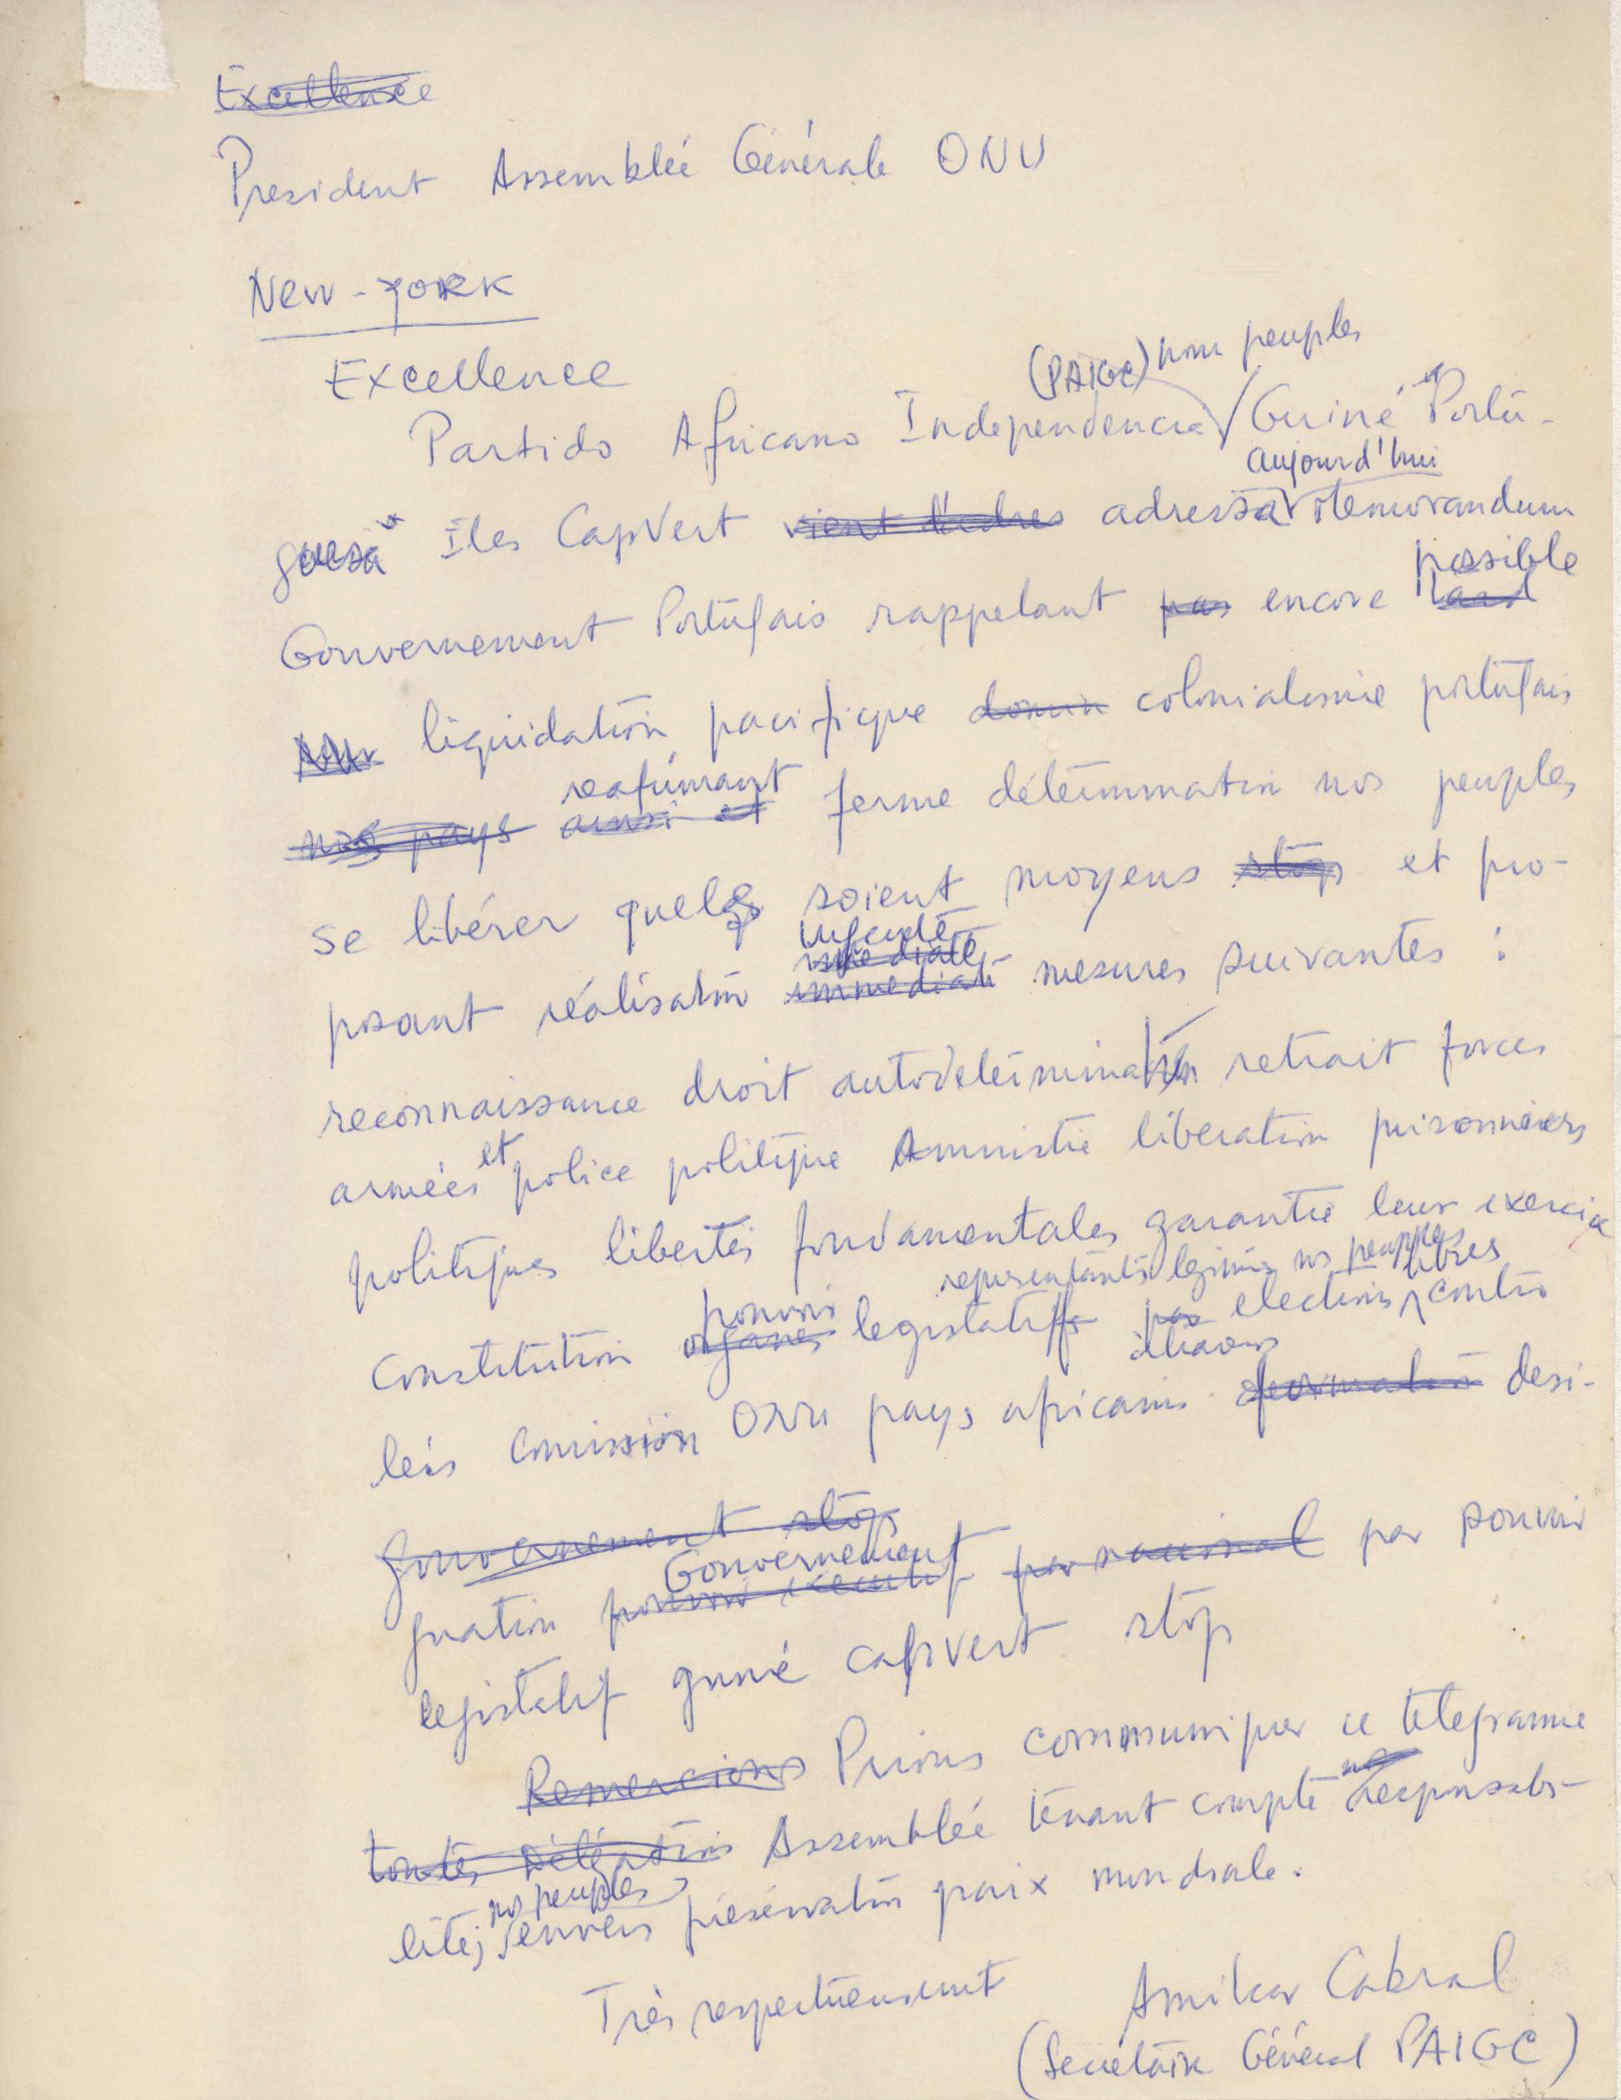 Excellence
President Assemblée Générale ONU
New-York
Excellence
(PAIGC) pour peuples
Partido Africano Independencia Guiné Portu-
aujourd'hui
guesa Iles CapVert vient d'adres adressa Memorandum
possible
Gouvernement Portugais rappelant pas encore tard
pour liquidation pacifique domin colonialisme portugais
reafirmant
nos pays ainsi et ferme détermination nos peuples
se libérer quels soient moyens stop et pro-
urgente
immediate
posant réalisation immediate mesures suivantes :
reconnaissance droit autodetermination retrait forces
et
armées police politique Amnistie liberation prisonniers
politiques libertés fondamentales garantie leur exercice
pouvoir representants legitimes nos peuples libres
Constitution organes legislatifs par elections contro
à travers
lées Comission ONU pays africains formation desi-
gouvernement stop
Gouvernement
gnation pouvoir executif par national par pouvoir
legislatif guiné capvert stop
Remercions Prions communiquer ce telegramme
nos
toutes Délégations Assemblée tenant compte responsabi-
nos peuples
lités envers préservation paix mondiale.
Très respectueusement Amilcar Cabral
(Secrétaire Général PAIGC)